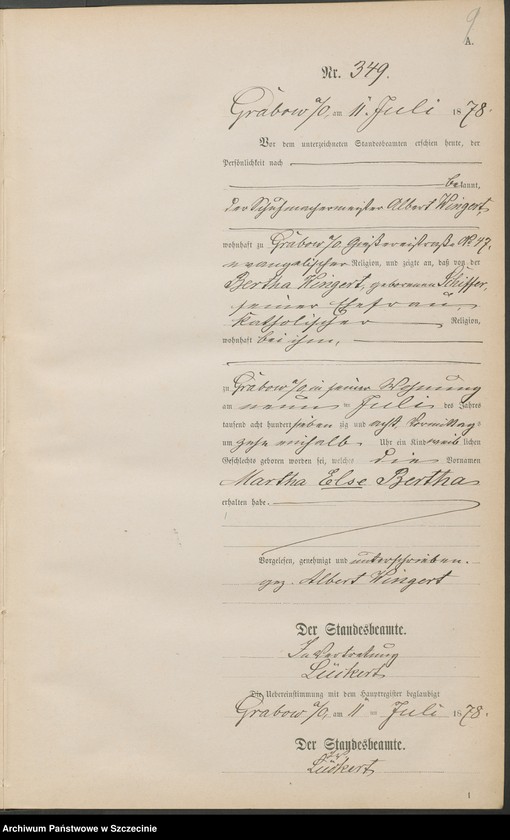 9
A.
Nr. 349.
Grabow a/O, am 11 Juli 1878.
Vor dem unterzeichneten Standesbeamten erschien heute, der
Persönlichkeit nach
bekannt,
der Schuhmachermeister Albert Wingert,
wohnhaft zu Grabow a/O, Gießereistraße No 47,
evangelischer Religion, und zeigte an, daß von der
Bertha Wingert, geborenen Schiffer,
seiner Ehefrau,
katholischer Religion,
wohnhaft bei ihm,
zu Grabow a/O, in seiner Wohnung
am neun = Juli des Jahres
tausend acht hundert sieben zig und acht, Vormittags
um zehn einhalb Uhr ein Kind weib lichen
Geschlechts geboren worden sei, welches die Vornamen
Martha Else Bertha
erhalten habe.
Vorgelesen, genehmigt und unterschrieben.
gez. Albert Wingert
Der Standesbeamte.
In Vertretung
Lückert
Die Uebereinstimmung mit dem Hauptregister beglaubigt
Grabow a/O, am 11 = Juli 1878.
Der Standesbeamte.
Lückert
1
Archiwum Państwowe w Szczecinie